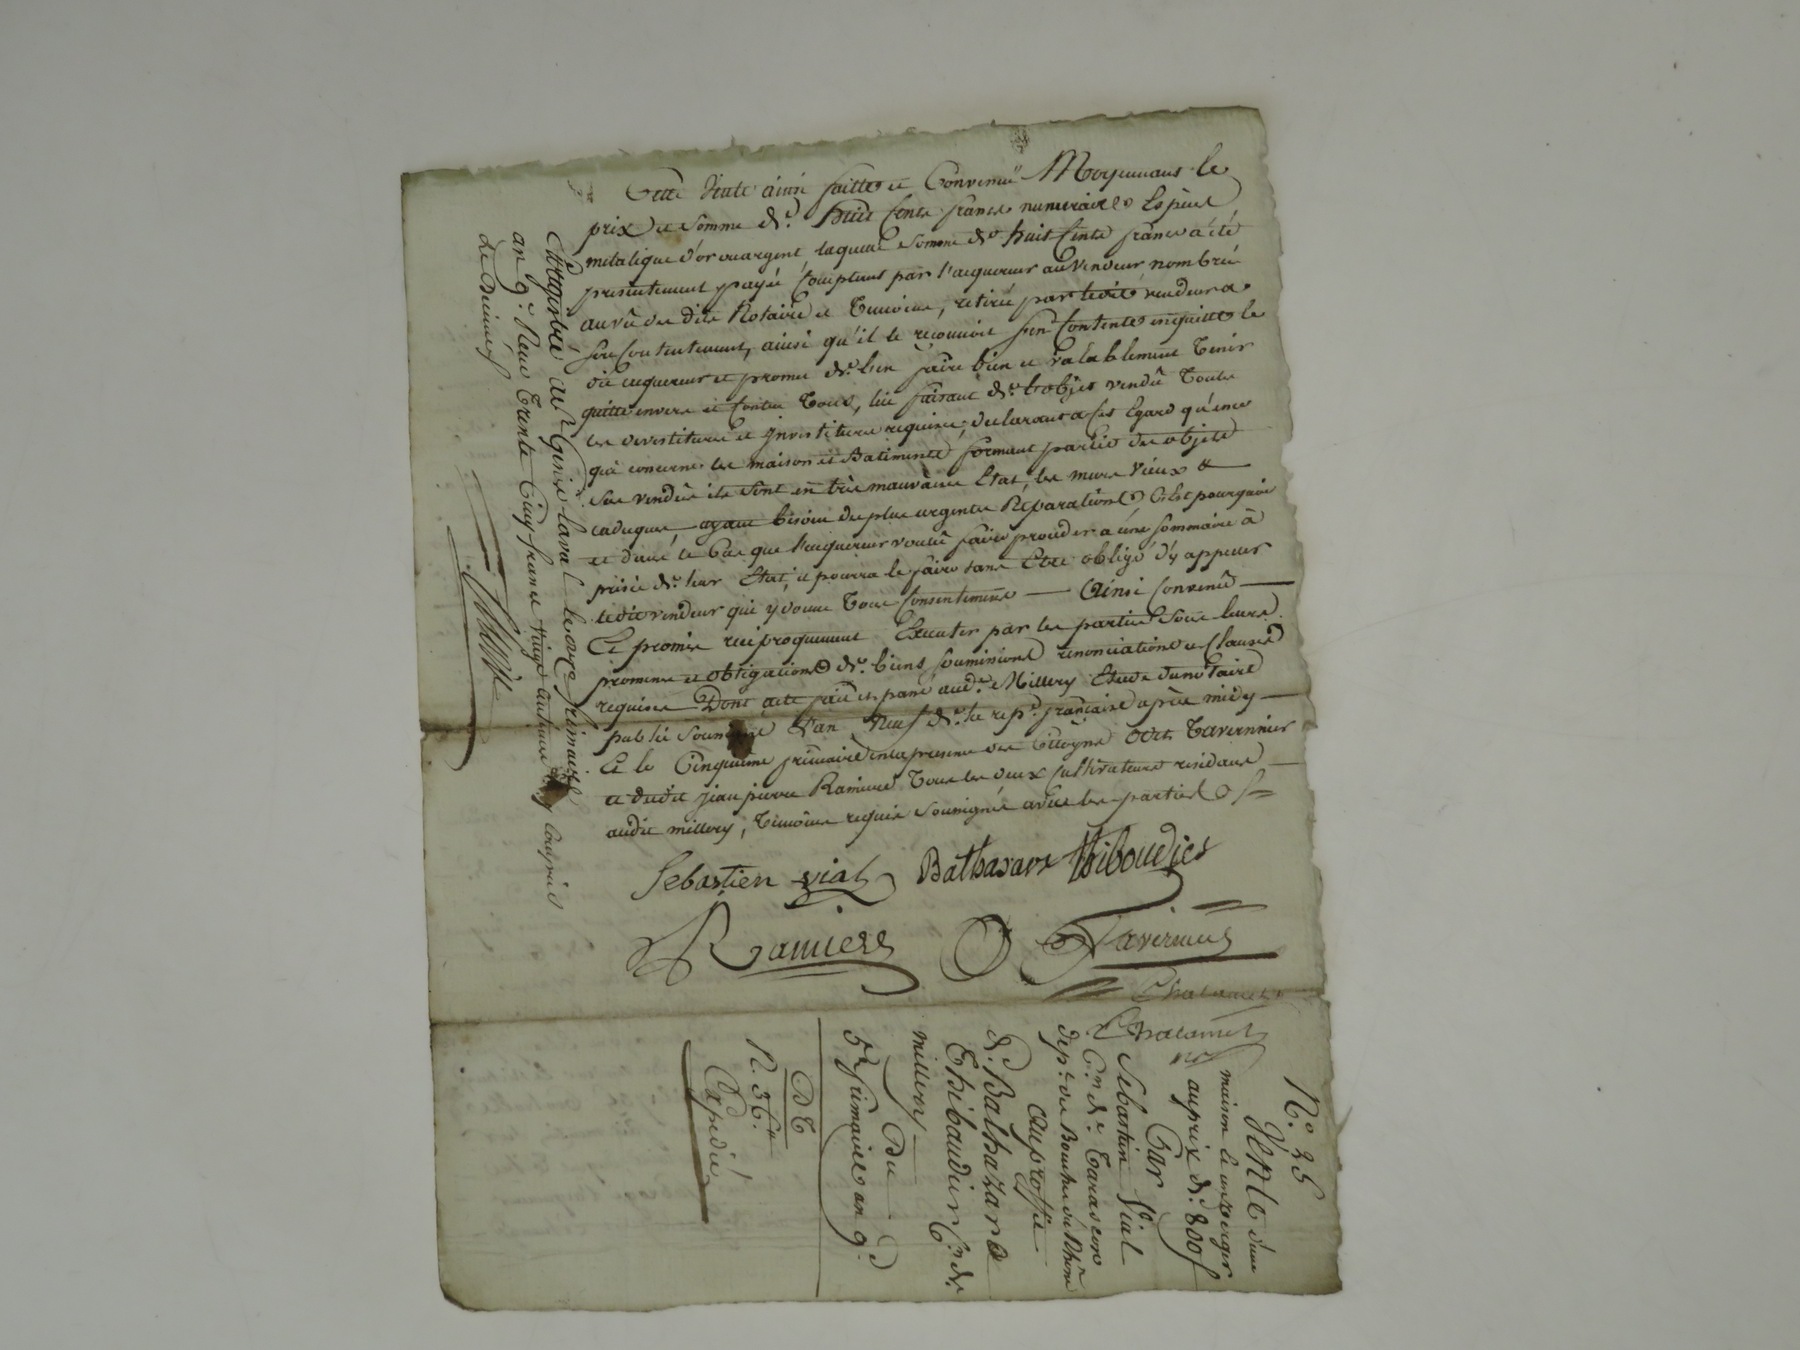 Cette vente ainsi faitte et Convenue Moyennant le
prix et somme de huit Cents francs numeraires Espece
metalique d'or ou argent, laquelle somme de huit Cents francs a été
presentement payé Comptans par l'acquereur au vendeur nombrée
au vû des dits Notaire et Temoins, retiré par ledit vendeur a
son Contentement, ainsi qu'il le reconnoit s'en Contente en quitte le
dit acquereur et promet de l'en faire bien et valablement Tenir
quitte envers et Contre Tous, lui faisant de l'objet vendû Toutes
les devestitures et Investitures requises, declarant a cet Egard qu'en ce
qui concerne les maison et Batiments formant partie des objets
sus vendûs ils sont en très mauvaise Etat, les murs vieux &
caduques, ayant besoin des plus urgentes Reparations, C'est pourquoi
et dans le Cas que l'acquereur voulû faire proceder a une sommaire à
prisée de leur Etat, il pourra le faire sans Etre obligé d'y appeller
ledit vendeur qui y donne Tous Consentements — Ainsi Convenû —
Et promis reciproquement Executer par les parties Sous leurs
promesses et obligations de biens soumissions renonciations et Clauses
requises Dont acte fait et passé aud. Millery Etude du notaire
public soussigné L'an Neuf de la rep. française après midy —
Et le Cinquieme frimaire en la presence des Citoyens Tavernier
et dudit jean pierre Ramiere Tous les deux Cultivateurs residans —
audit millery, Temoins requis soussignés avec les parties
Sebastien vial Balthasard Thiboudier
Ramiere Tavernier
Chatanier
Chatanier
nor
Enregistré à St Genis-laval le onze frimaire
an 9. Reçu Trente Cinq francs vingt centimes y compris
Le Dixieme
No. 25
Vente d'une
maison et un verger
au prix de 800 f
Par
Sebastien Vial
Cn. de Tarascon
dep. des Bouches du Rhone
Au proffit
de Balthazard
Thibaudier Cn. de
millery
Du
5e frimaire an 9.
D C
R. 36
Expedié